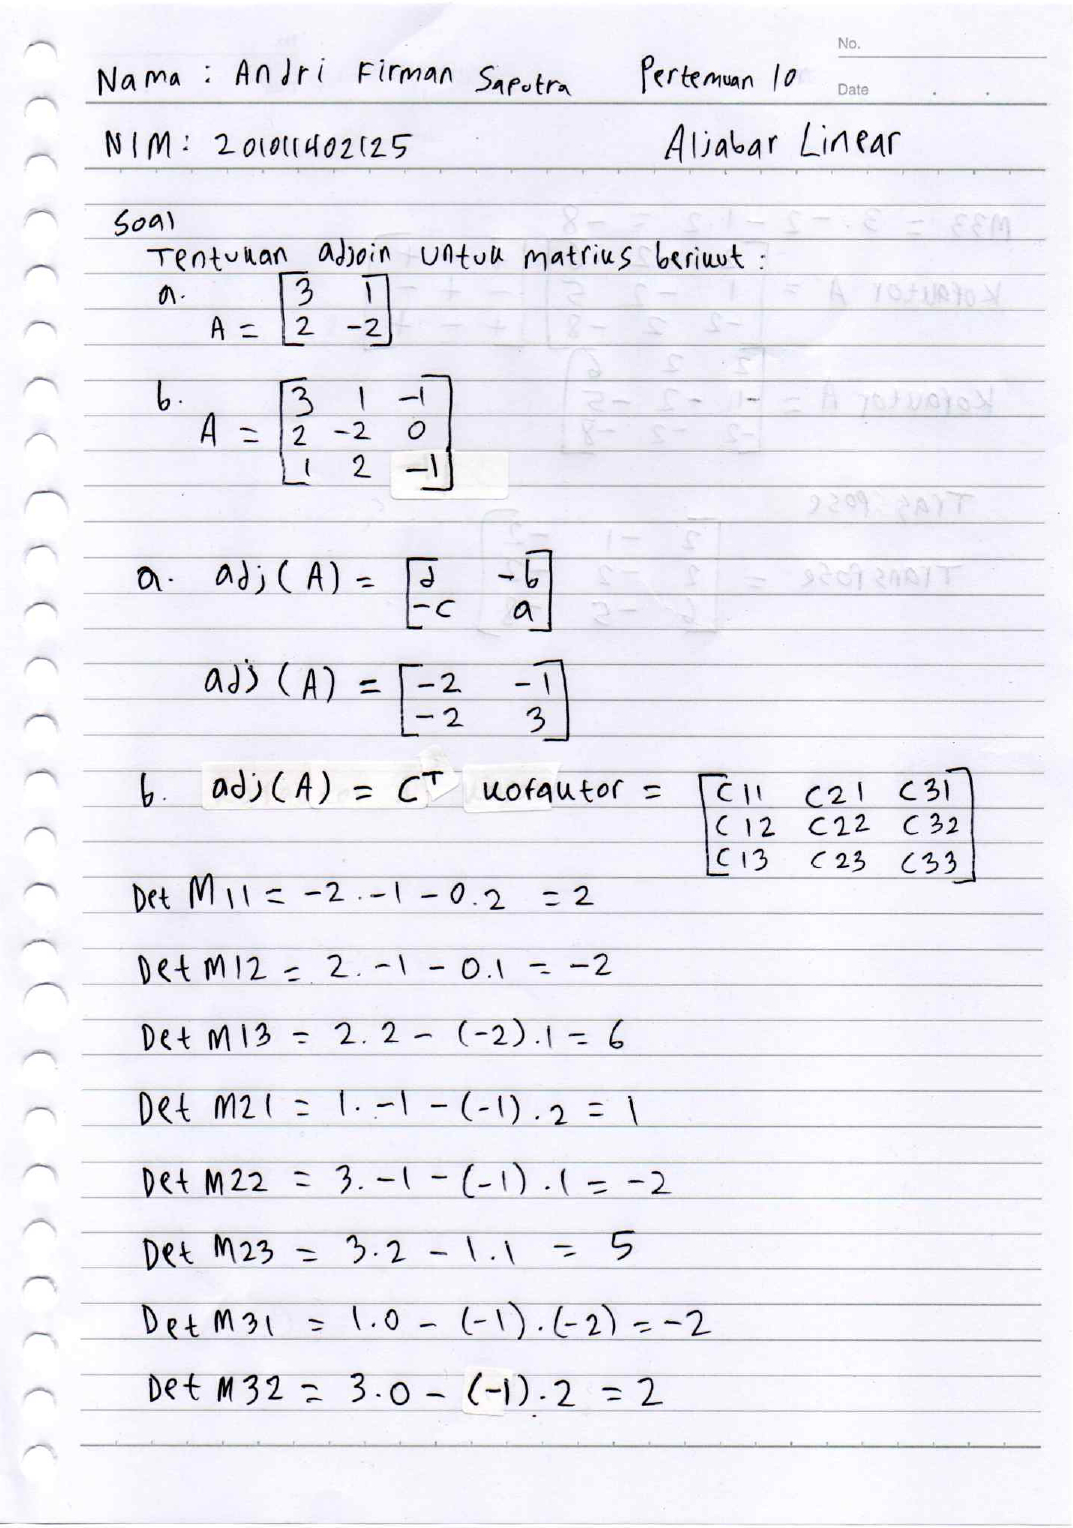 No.
Nama : Andri Firman Saputra Pertemuan 10
Date
NIM: 201011402125 Aljabar Linear
Soal
Tentukan adjoin untuk matriks berikut :
a.
A = [3 1
2 -2]
b.
A = [3 1 -1
2 -2 0
1 2 -1]
a. adj(A) = [d -b
-c a]
adj (A) = [-2 -1
-2 3]
b. adj(A) = C^T kofaktor = [C11 C21 C31
C12 C22 C32
C13 C23 C33]
Det M11 = -2.-1 - 0.2 = 2
Det M12 = 2.-1 - 0.1 = -2
Det M13 = 2.2 - (-2).1 = 6
Det M21 = 1.-1 - (-1).2 = 1
Det M22 = 3.-1 - (-1).1 = -2
Det M23 = 3.2 - 1.1 = 5
Det M31 = 1.0 - (-1).(-2) = -2
Det M32 = 3.0 - (-1).2 = 2